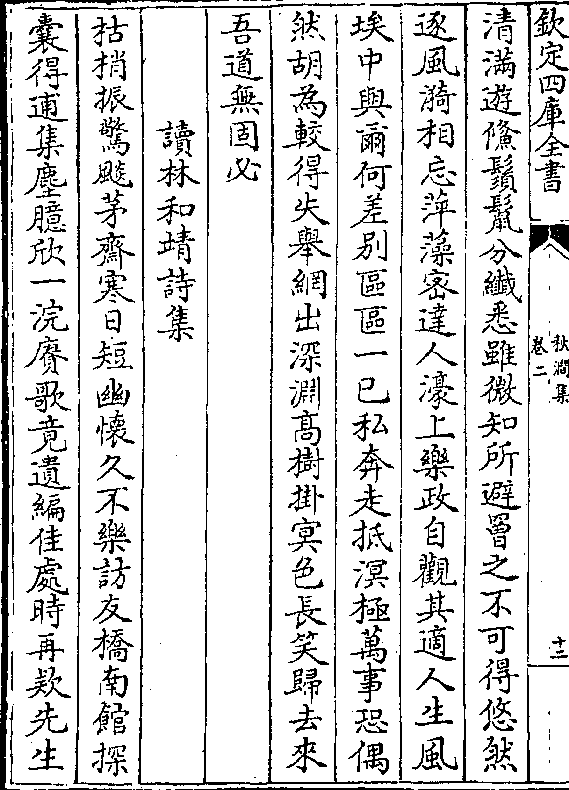 欽定四庫全書
秋澗集
卷二
十二
清滿遊鯈鬚鬛分纖悉雖微知所避罾之不可得悠然
逐風漪相忘萍藻密達人濠上樂政自觀其適人生風
埃中與爾何差别區區一已私奔走抵溟極萬事恐偶
然胡為較得失舉網出深淵髙樹掛冥色長笑歸去來
吾道無固必
讀林和靖詩集
拈梢振驚飈茅齋寒日短幽懷久不樂訪友橋南館探
囊得逋集塵臆欣一浣賡歌竟遺編佳處時再欵先生